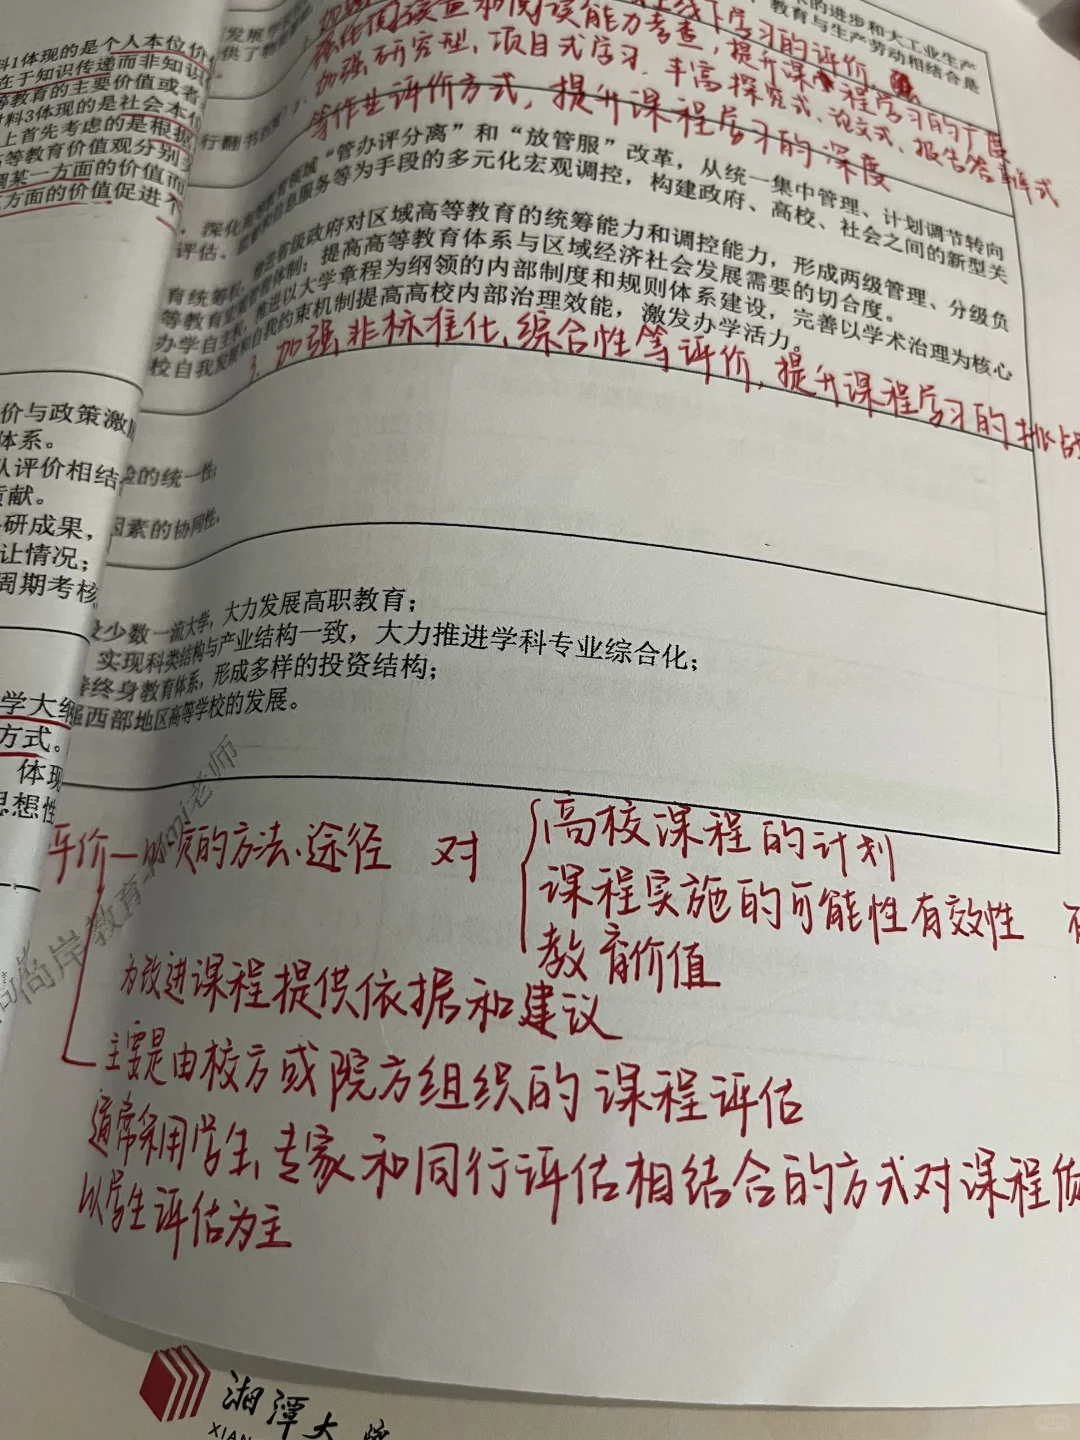 料1体现的是个人本位价
在于知识传递而非知识
等教育的主要价值或者
材料3体现的是社会本位
上首先考虑的是根据
高等教育价值观分别
调某一方面的价值而
方面的价值促进
价与政策激励
体系。
队评价相结
贡献。
研成果，
让情况；
周期考核
学大纲
方式。
体现
思想性
的进步和大工业生产
教育与生产劳动相结合是
线下学习的评价，
阅读量和阅读能力考查，提升课程学习的广度
加强研究型、项目式学习，丰富探究式、论文式、报告答辩式
等作业评价方式，提升课程学习的深度
行翻书
深化高等教育领域“管办评分离”和“放管服”改革，从统一集中管理、计划调节转向
评估、信息服务等为手段的多元化宏观调控，构建政府、高校、社会之间的新型关
有统筹省级政府对区域高等教育的统筹能力和调控能力，形成两级管理、分级负
等教育管理体制；提高高等教育体系与区域经济社会发展需要的切合度。
办学自主权，推进以大学章程为纲领的内部制度和规则体系建设，完善以学术治理为核心
校自我发展和自我约束机制提高高校内部治理效能，激发办学活力。
3. 加强非标准化、综合性等评价，提升课程学习的挑战
的统一性
因素的协同性。
少数一流大学，大力发展高职教育；
实现科类结构与产业结构一致，大力推进学科专业综合化；
终身教育体系，形成多样的投资结构；
西部地区高等学校的发展。
评价—的方法、途径 对
高校课程的计划
课程实施的可能性有效性
教育价值
为改进课程提供依据和建议
主要是由校方或院方组织的课程评估
通常采用学生、专家和同行评估相结合的方式对课程
以学生评估为主
尚岸教育
老师
湘潭大
XIAN